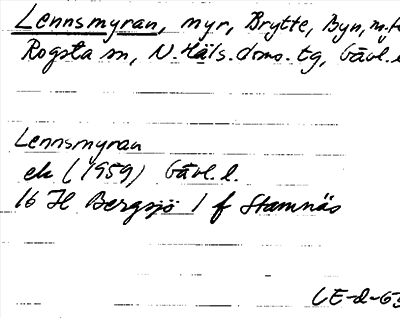 Lennsmyran, myr, Brytte, Byn, m.fl
Rogsta sn, N. Häls. doms. tg, Gävl. l
Lennsmyran
ek (1959) Gävl. l.
16 H Bergsjö 1 f Stamnäs
LE-d-63